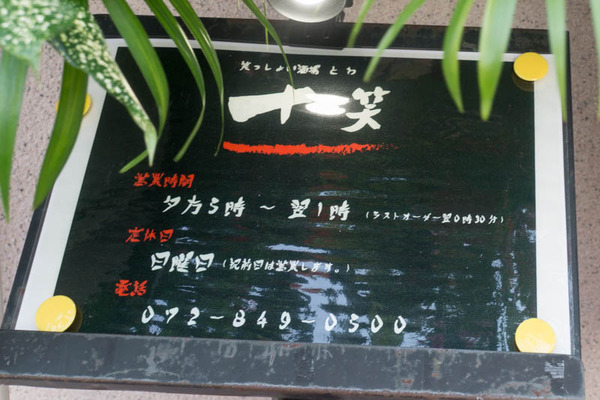 笑っしょい酒場 とわ
十笑
営業時間
夕方5時 ～ 翌1時 (ラストオーダー翌0時30分)
定休日
日曜日 (祝前日は営業します。)
電話
072-849-0500